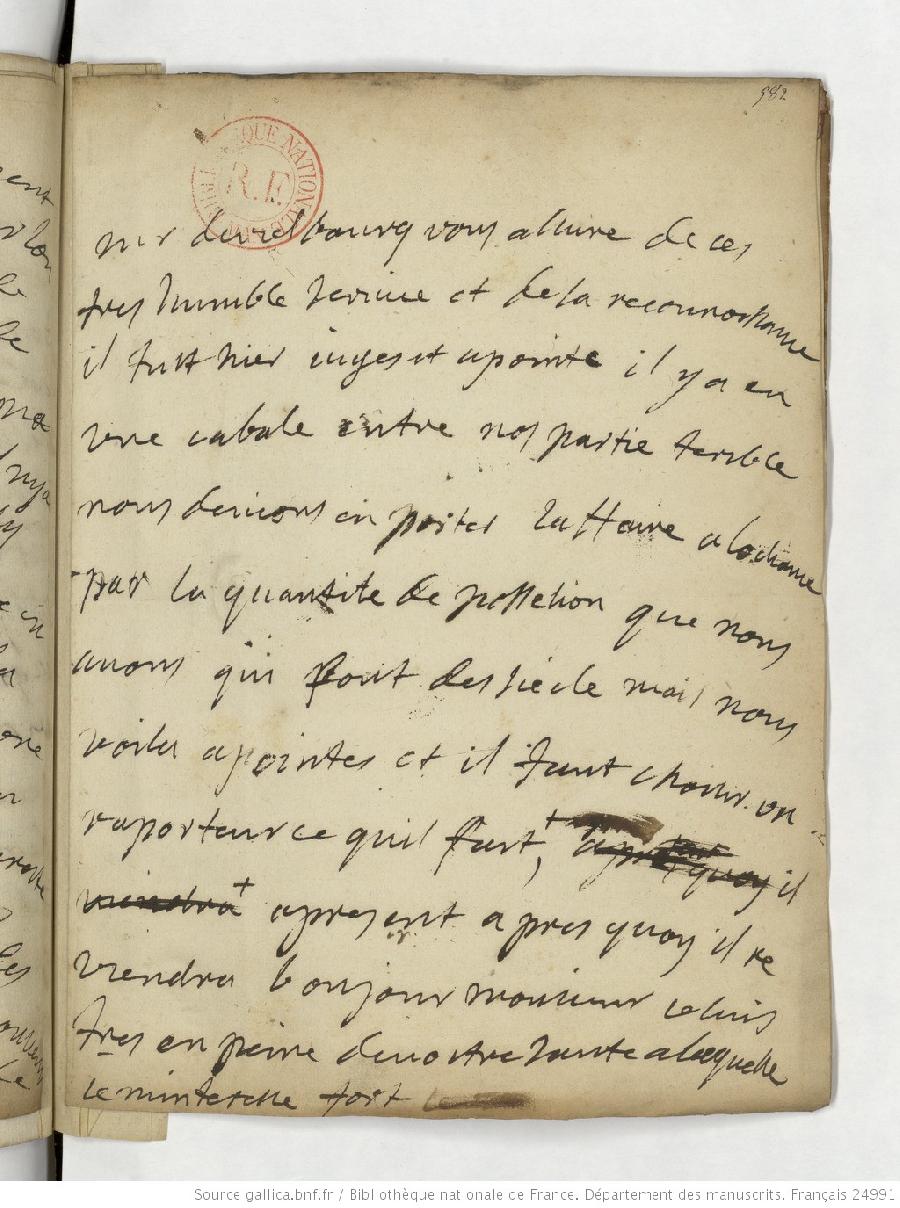 382
BIBLIOTHEQUE NATIONALE
R.F.
mr de vrelbourg vous assure de ces
tres humble service et de sa reconnoissance
il futt hier juges et apointe il y a eu
une cabale entre nos partie terible
nous devions en porter laffaire a laudiance
par la quantite de possession que nous
avons qui font des siecle mais nous
voila apointes et il faut choisir un
raporteur ce quil fait + il
viendra + apresent apres quoy il re
viendra bonjour monsieur ce suis
tres en peine de vostre sante a laquelle
ce minteresse fort
Source gallica.bnf.fr / Bibliothèque nationale de France. Département des manuscrits. Français 24991